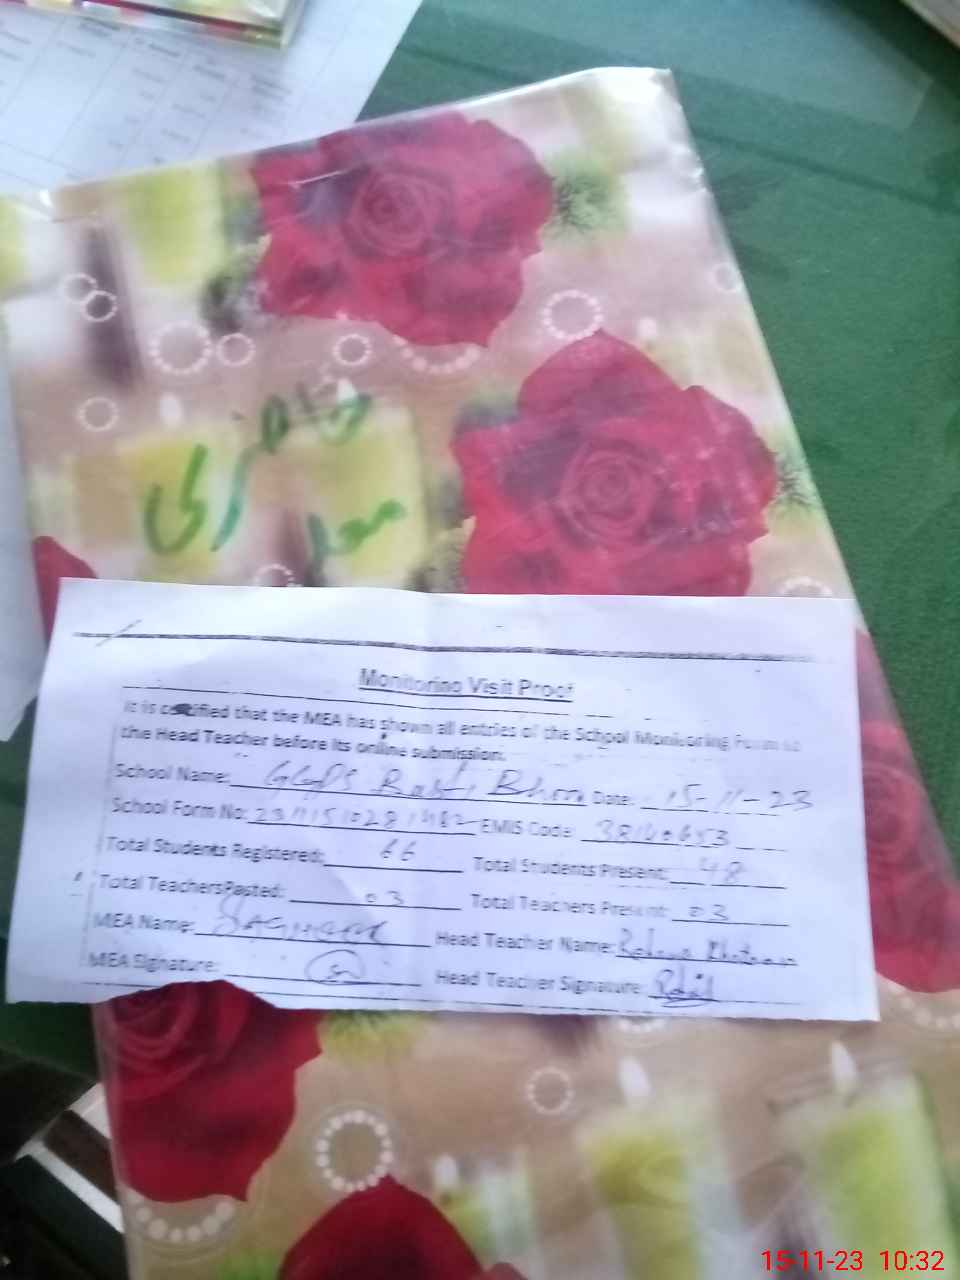 حاضری
معلمہ
Monitoring Visit Proof
It is certified that the MEA has shown all entries of the School Monitoring Form to
the Head Teacher before its online submission.
School Name: GGPS Basti Date: 15-11-23
School Form No: EMIS Code: 38140653
Total Students Registered: 66 Total Students Present: 48
Total Teachers Posted: 03 Total Teachers Present: 03
MEA Name: Head Teacher Name:
MEA Signature: Head Teacher Signature:
15-11-23 10:32